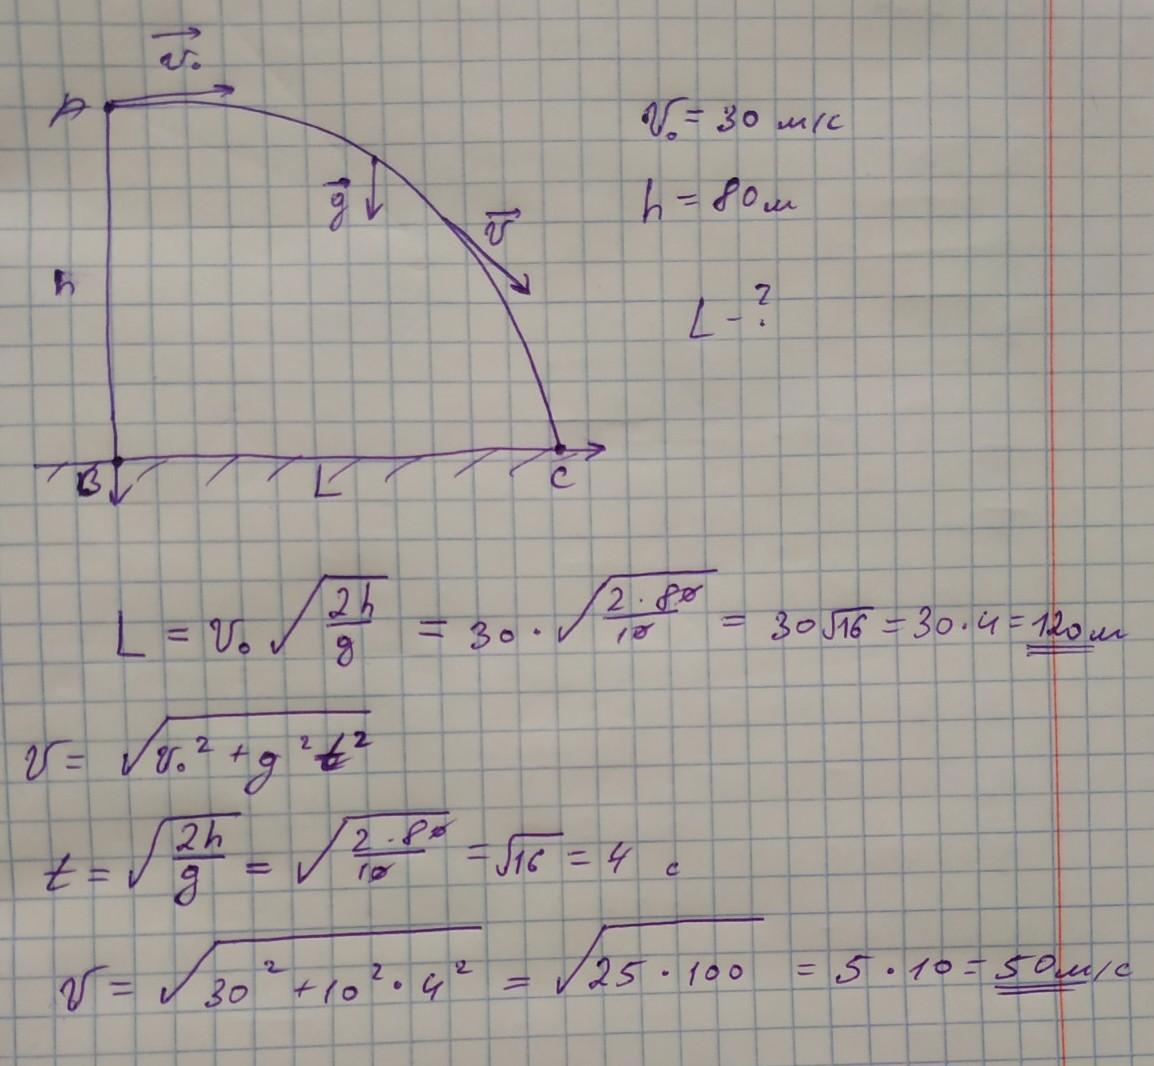 v₀
A
v₀ = 30 м/с
g
v
h = 80 м
h
L - ?
B
L
C
L = v₀ √(2h/g) = 30 · √(2 · 80/10) = 30√16 = 30 · 4 = 120 м
v = √(v₀² + g²t²)
t = √(2h/g) = √(2 · 80/10) = √16 = 4 с
v = √(30² + 10² · 4²) = √(25 · 100) = 5 · 10 = 50 м/с